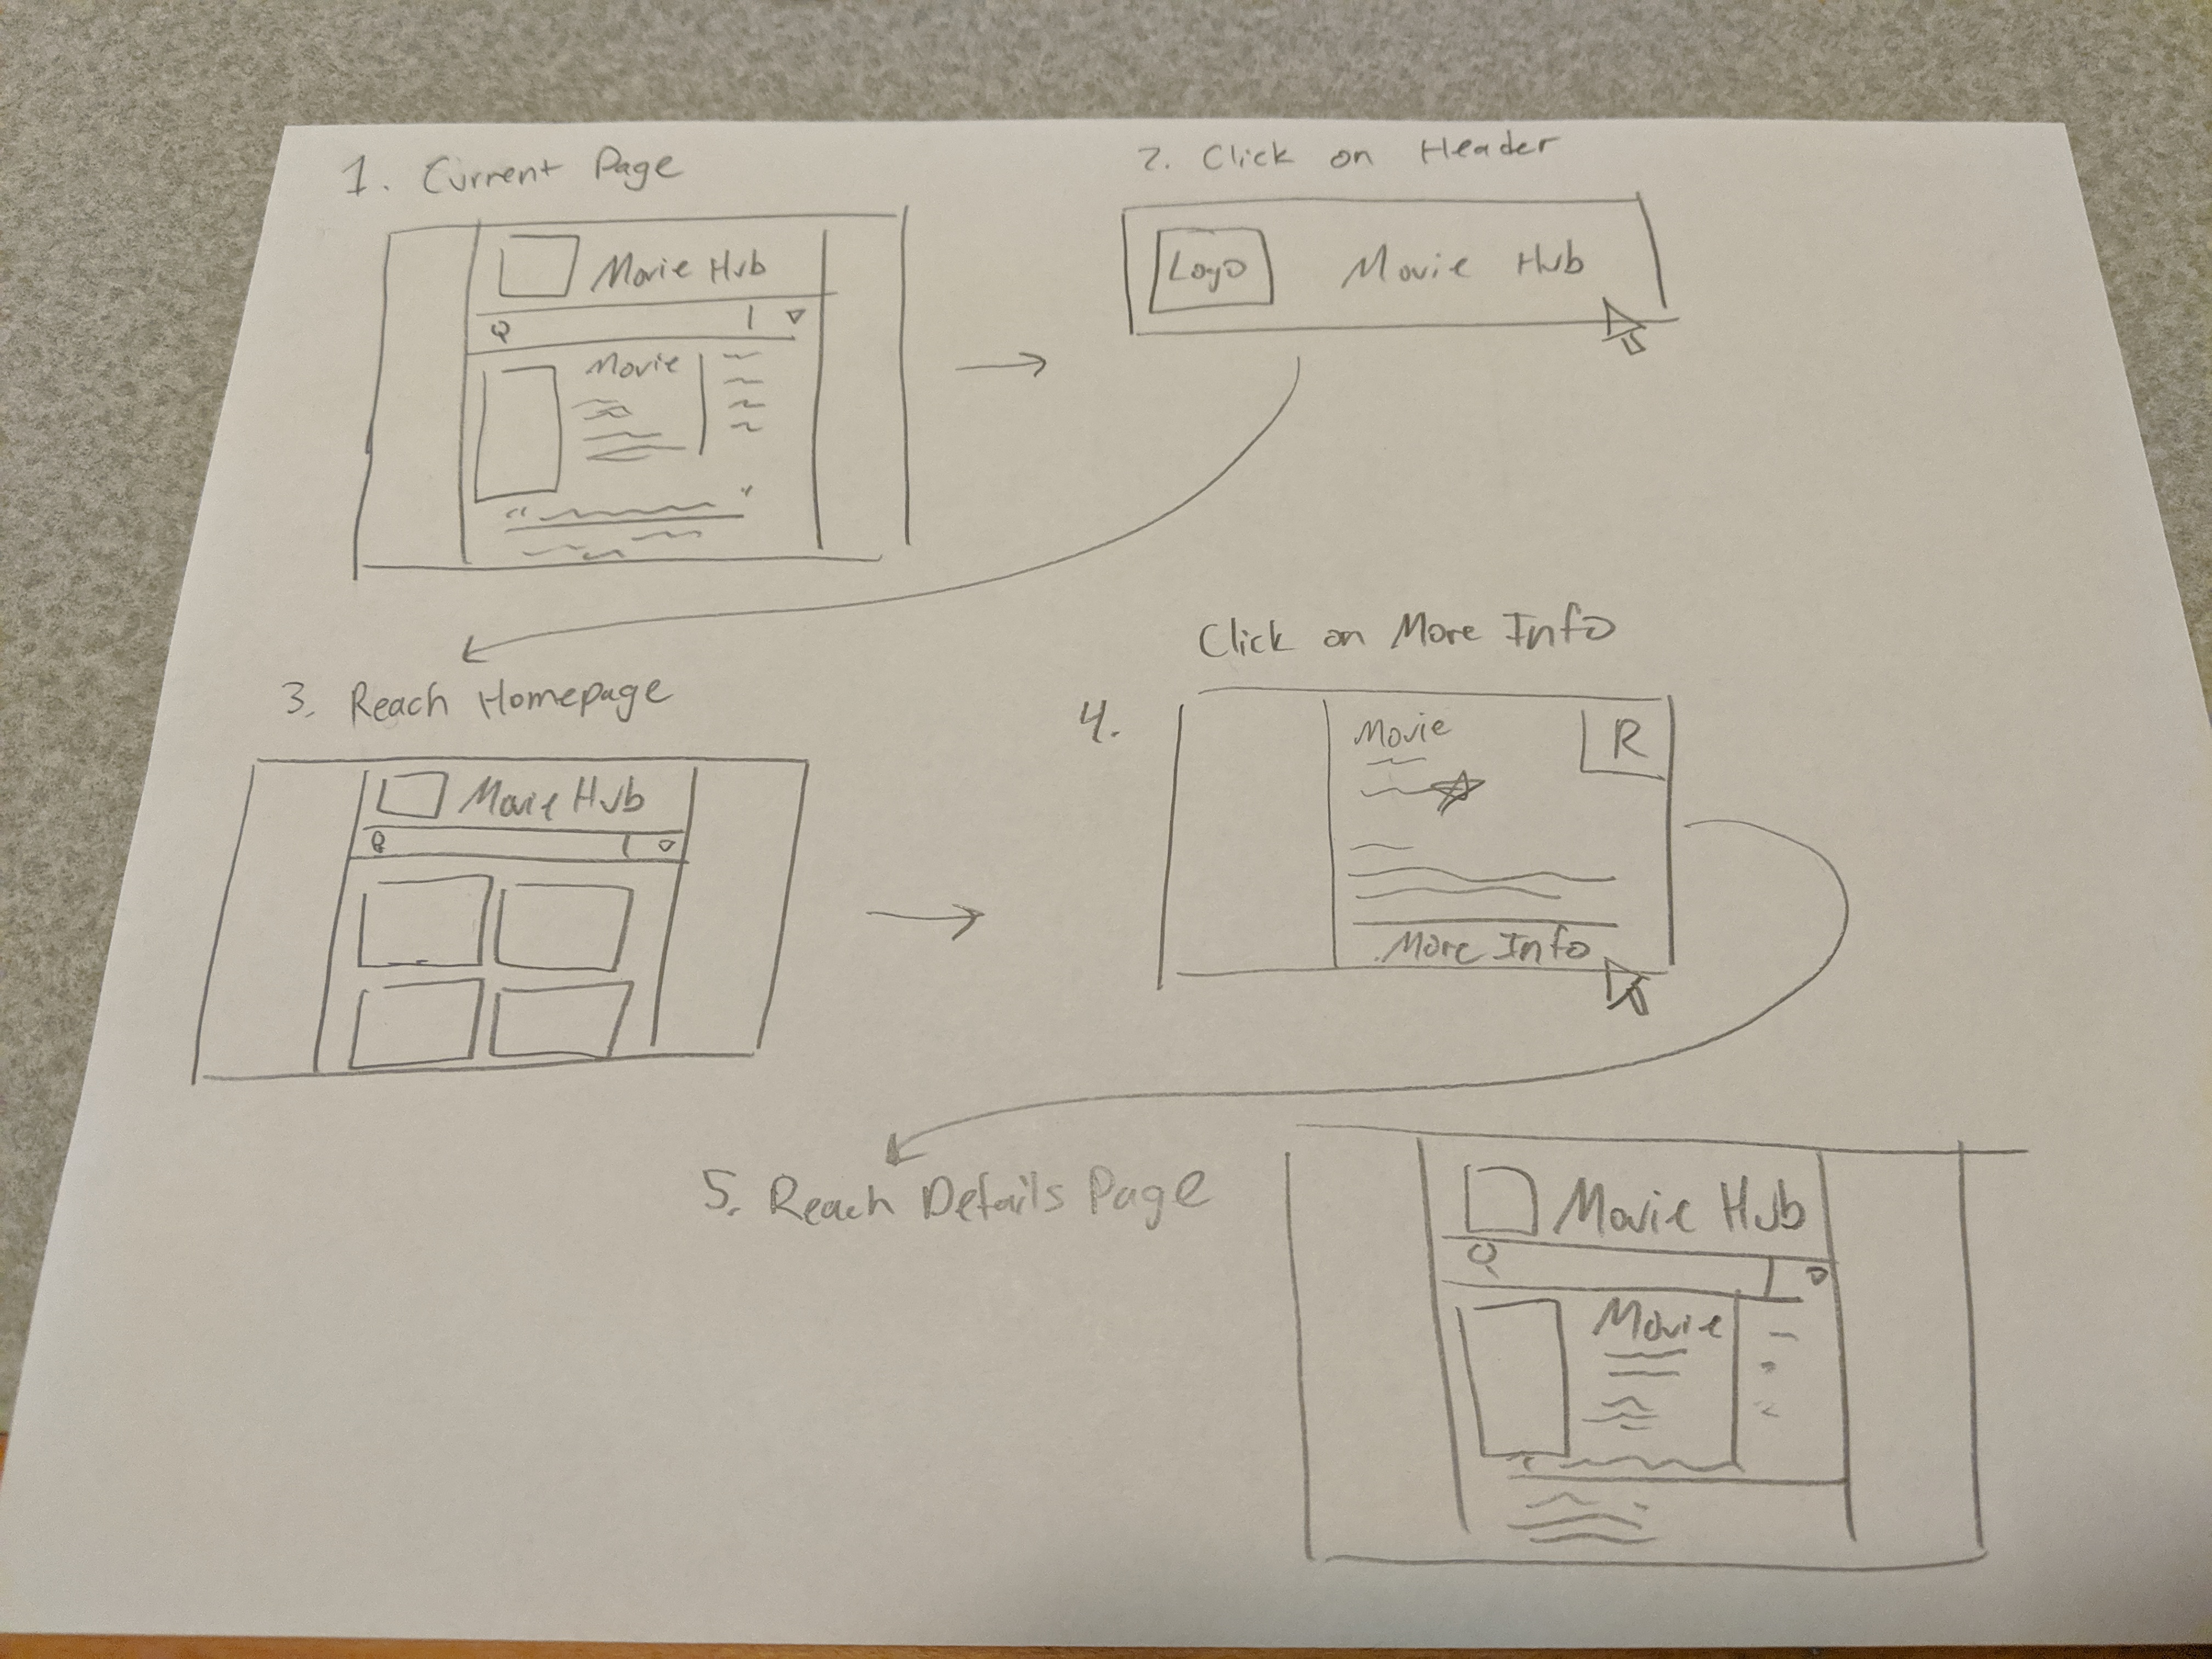 1. Current Page
Movie Hub
Movie
2. Click on Header
Logo Movie Hub
3. Reach Homepage
Movie Hub
Click on More Info
4.
Movie R
More Info
5. Reach Details Page
Movie Hub
Movie